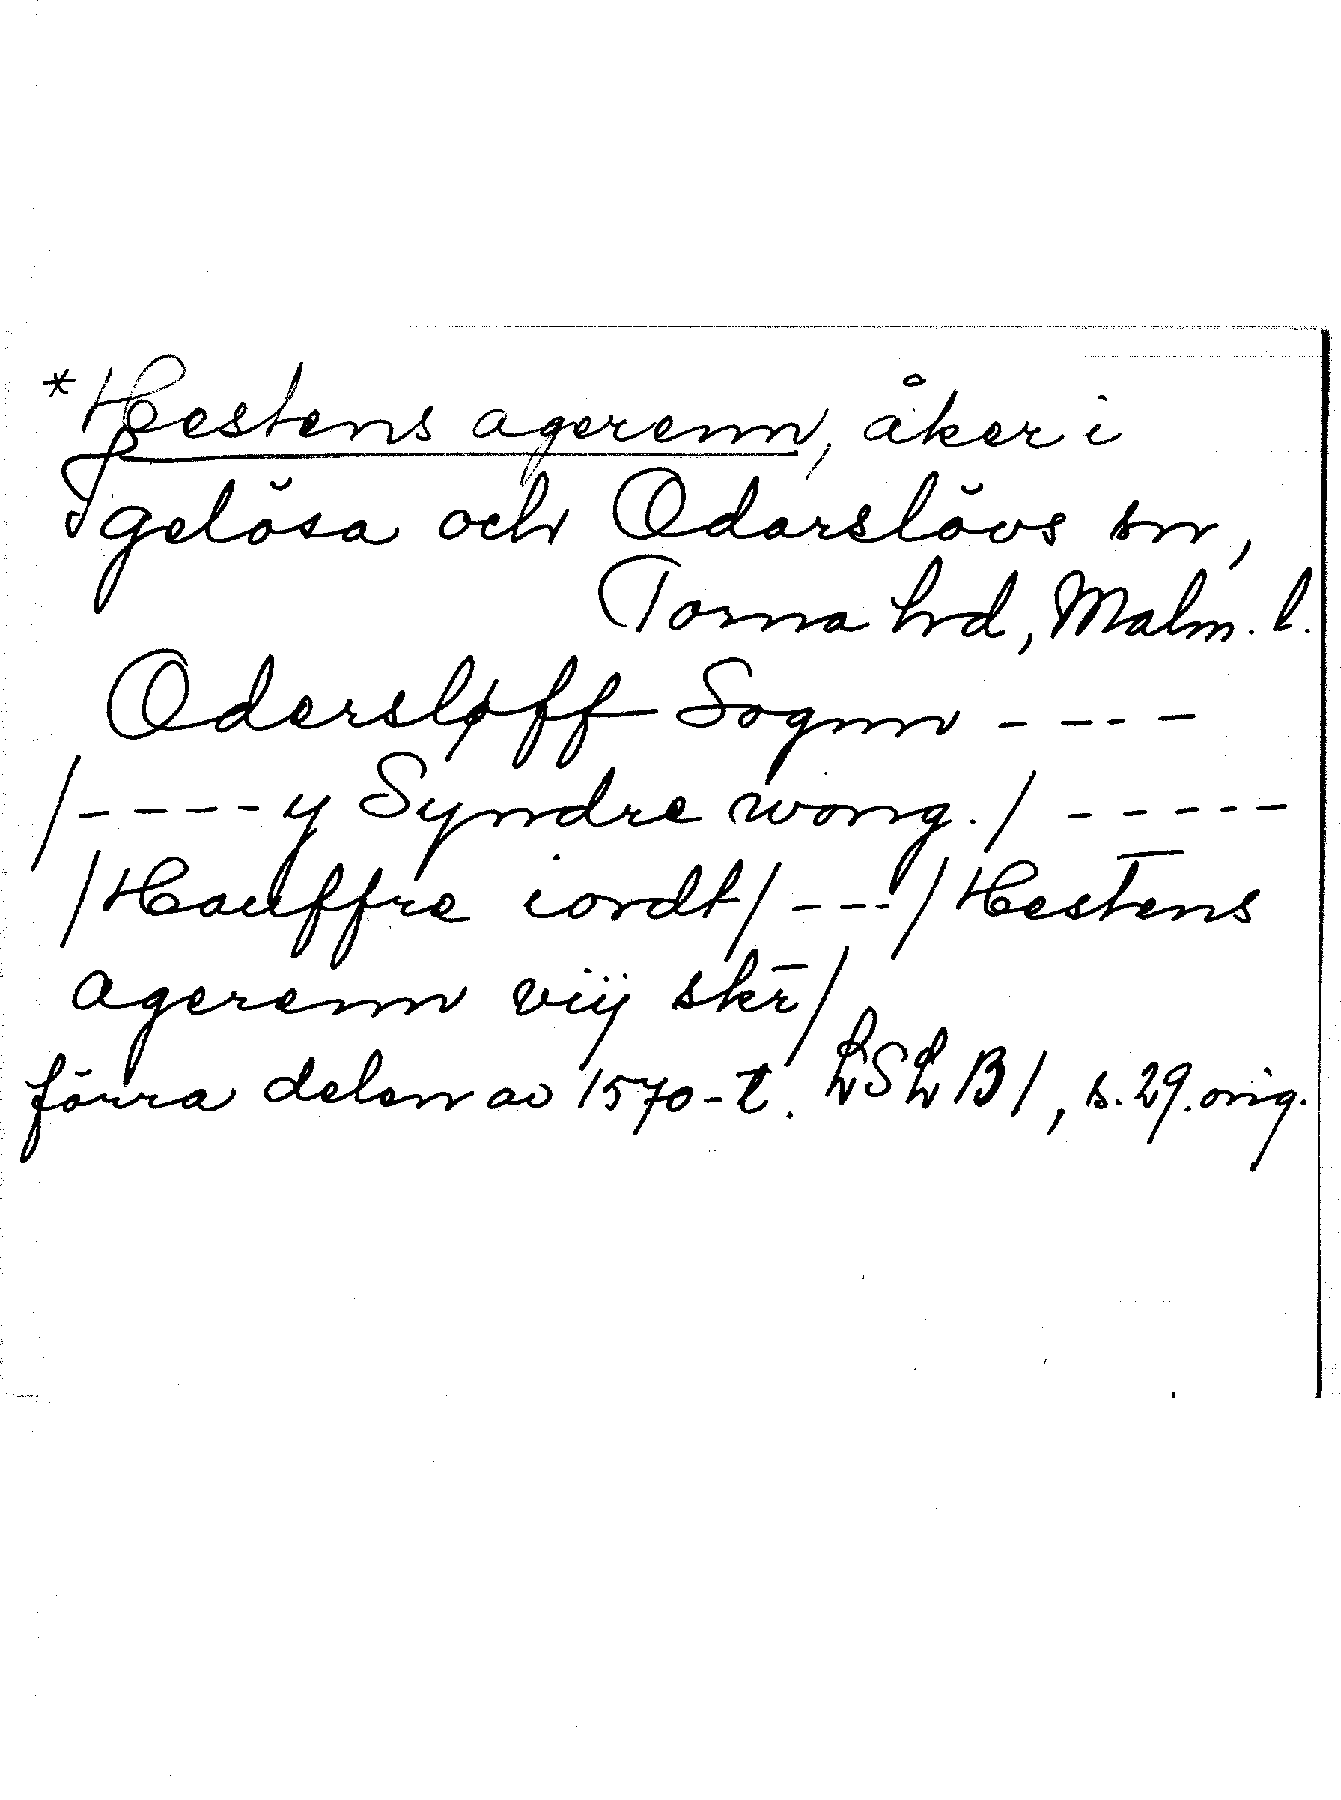 *Hestens agerenn, åker i
Igelösa och Odarslövs snr,
Torna hrd, Malm. l.
Odersløff Sognn - - - -
/- - - - - y Syndre wong. / - - - - -
/Hauffre iordt/ - - - / Hestens
agerenn viij skr̄/
förra delen av 1570-t. LSLB1, s. 29. orig.